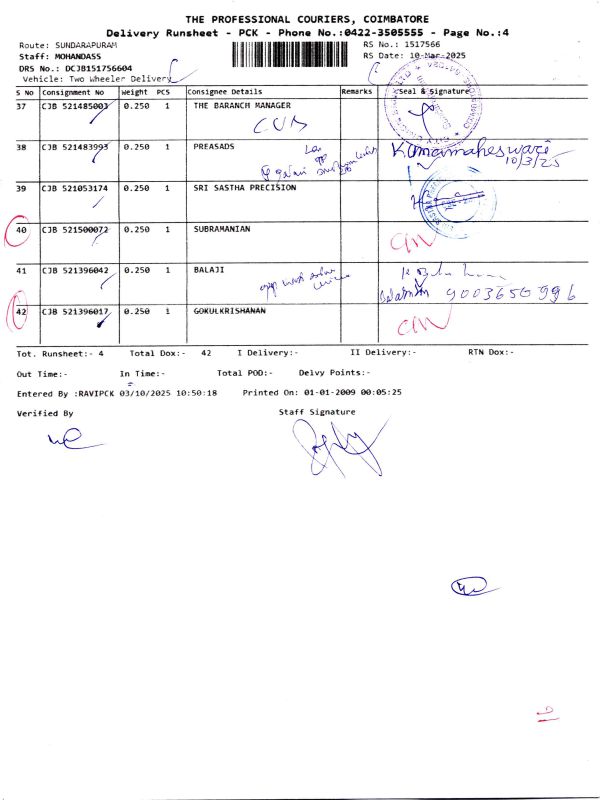 THE PROFESSIONAL COURIERS, COIMBATORE
Delivery Runsheet - PCK - Phone No.:0422-3505555 - Page No.:4
Route: SUNDARAPURAM RS No.: 1517566
Staff: MOHANDASS RS Date: 10-Mar-2025
DRS No.: DCJB151756604
Vehicle: Two Wheeler Delivery
S No Consignment No Weight PCS Consignee Details Remarks Seal & Signature
37 CJB 521485003 0.250 1 THE BARANCH MANAGER
CUB
38 CJB 521483993 0.250 1 PREASADS K.Umamaheswari
10/3/25
39 CJB 521053174 0.250 1 SRI SASTHA PRECISION
40 CJB 521500072 0.250 1 SUBRAMANIAN
41 CJB 521396042 0.250 1 BALAJI
9003650996
42 CJB 521396017 0.250 1 GOKULKRISHANAN
Tot. Runsheet:- 4 Total Dox:- 42 I Delivery:- II Delivery:- RTN Dox:-
Out Time:- In Time:- Total POD:- Delvy Points:-
Entered By :RAVIPCK 03/10/2025 10:50:18 Printed On: 01-01-2009 00:05:25
Verified By Staff Signature